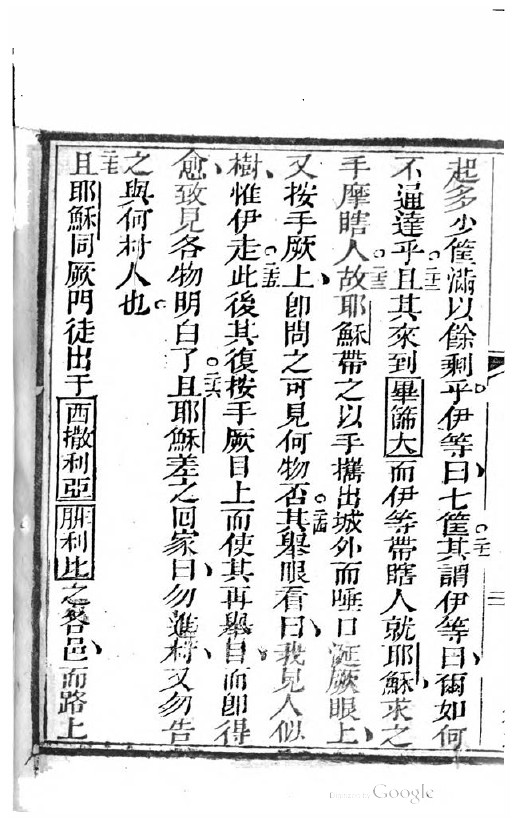 起多少筐滿以餘剩乎伊等曰七筐二十一其謂伊等曰爾如何
不通達乎二十二且其來到畢篩大而伊等帶瞎人就耶穌求之
手摩瞎人二十三故耶穌帶之以手攜出城外而唾口涎厥眼上
又按手厥上即問之可見何物否二十四其舉眼看曰我見人似
樹惟伊走二十五此後其復按手厥目上而使其再舉目而即得
愈致見各物明白了二十六且耶穌差之回家曰勿進村又勿告
之與何村人也
二十七且耶穌同厥門徒出于西撒利亞腓利比之各邑而路上
Google